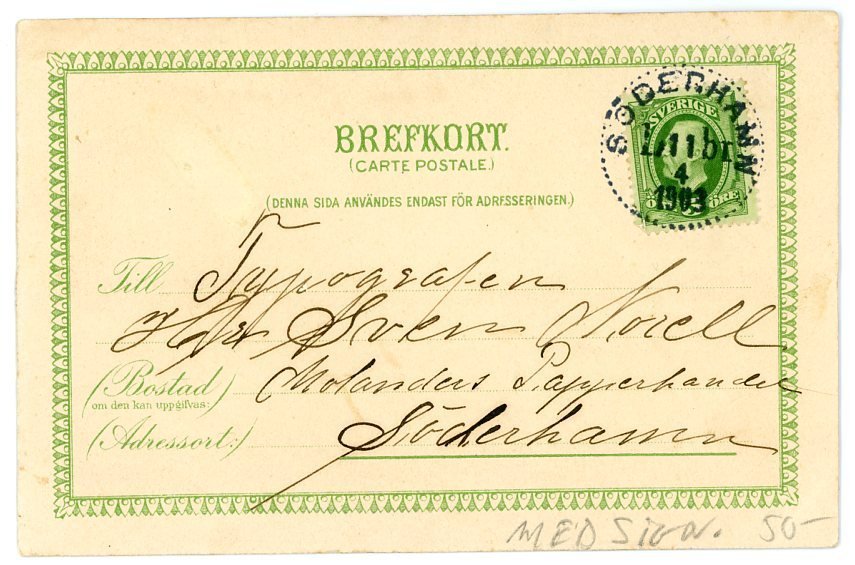 BREFKORT.
(CARTE POSTALE.)
(DENNA SIDA ANVÄNDES ENDAST FÖR ADRESSERINGEN.)
SÖDERHAMN
SVERIGE
11
4
1903
ÖRE
Till Typografen
Herr Sven Norell
(Bostad) Molanders Papperhandel
om den kan uppgifvas:
(Adressort:) Söderhamn
MED SIGN. 50-